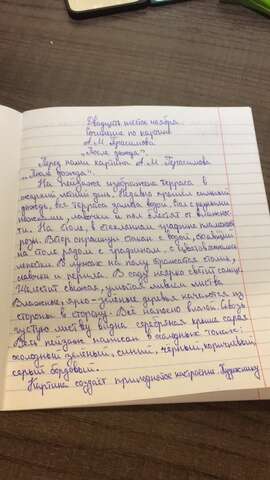 Двадцать шестое ноября
Сочинение по картине
А.М. Герасимова
„После дождя".
Перед нами картина А.М. Герасимова
„После дождя".
На пейзаже изображена терраса в
жаркий летний день. Недавно прошёл сильный
дождь, вся терраса залита водой. Стол с резными
ножками, лавочки и пол блестят от влажнос-
ти. На столе, в стеклянном графине стоят
розы. Ветер опрокинул стакан с водой, стоявший
на столе рядом с графином, с цветов опали
лепестки. В лужах на полу отражаются стол,
лавочки и перила. В саду неярко светит солнце.
Шелестит свежая, умытая ливнем листва.
Влажные, ярко-зелёные деревья качаются из
стороны в сторону. Всё напоено влагой. Сквозь
густую листву видна серебряная крыша сарая.
Весь пейзаж написан в холодных тонах:
холодный зелёный, синий, чёрный, коричневый,
серый бордовый.
Картина создаёт приподнятое настроение. Художнику